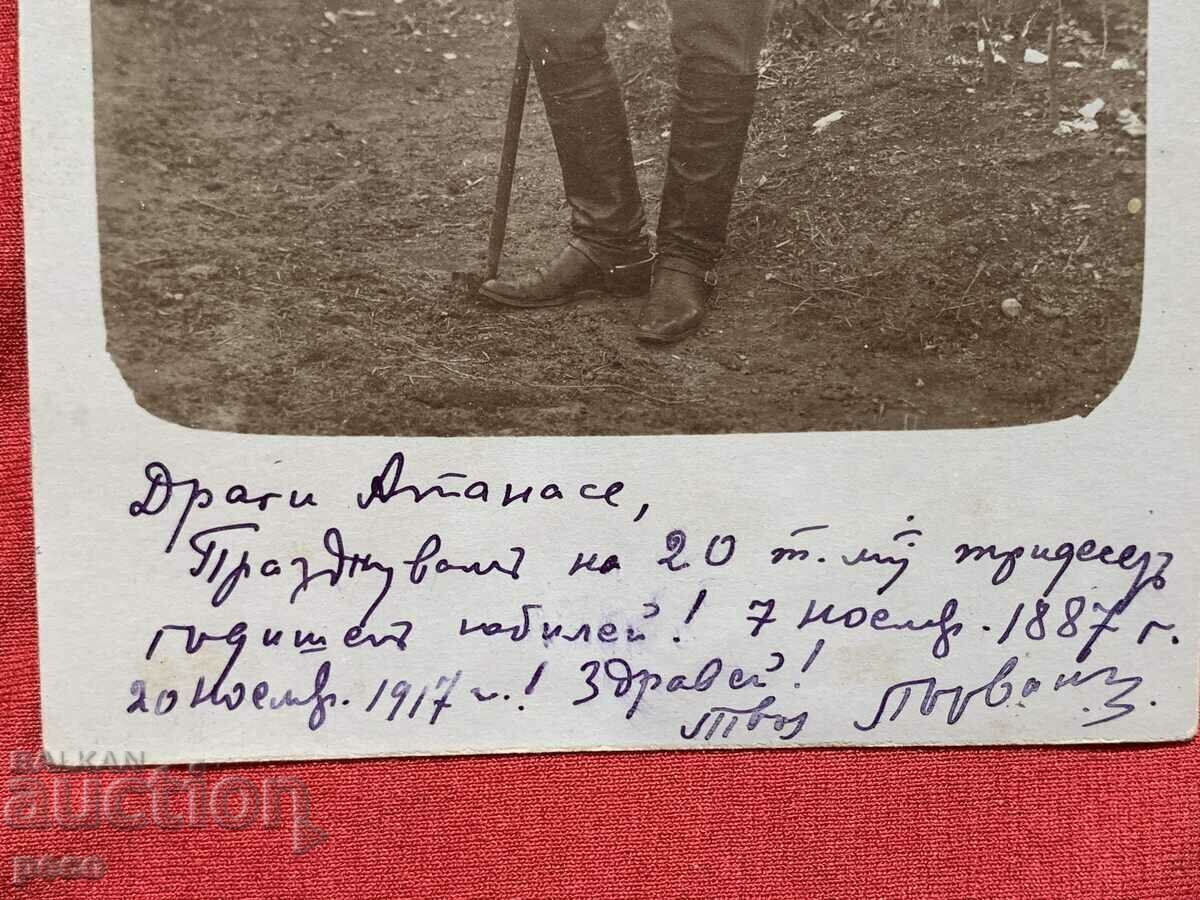 Драги Атанасе,
Празднувамъ на 20 т. м. тридесеть
годишенъ юбилей! 7 ноемвр. 1887 г.
20 ноемвр. 1917 г.! Здравей!
Твой Първанъ
BALKAN
auction
poco